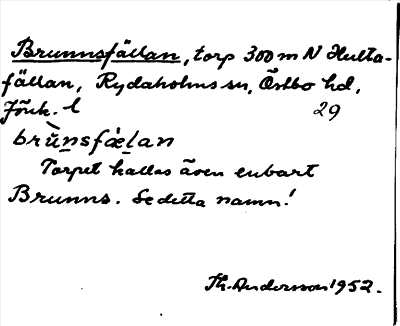 Brunnsfällan, torp 300 m N Hulta-
fällan, Rydaholms sn, Östbo hd,
Jönk. l
29
brùnsfæ̀lan
Torpet kallas även enbart
Brunns. Se detta namn!
Th. Andersson 1952.